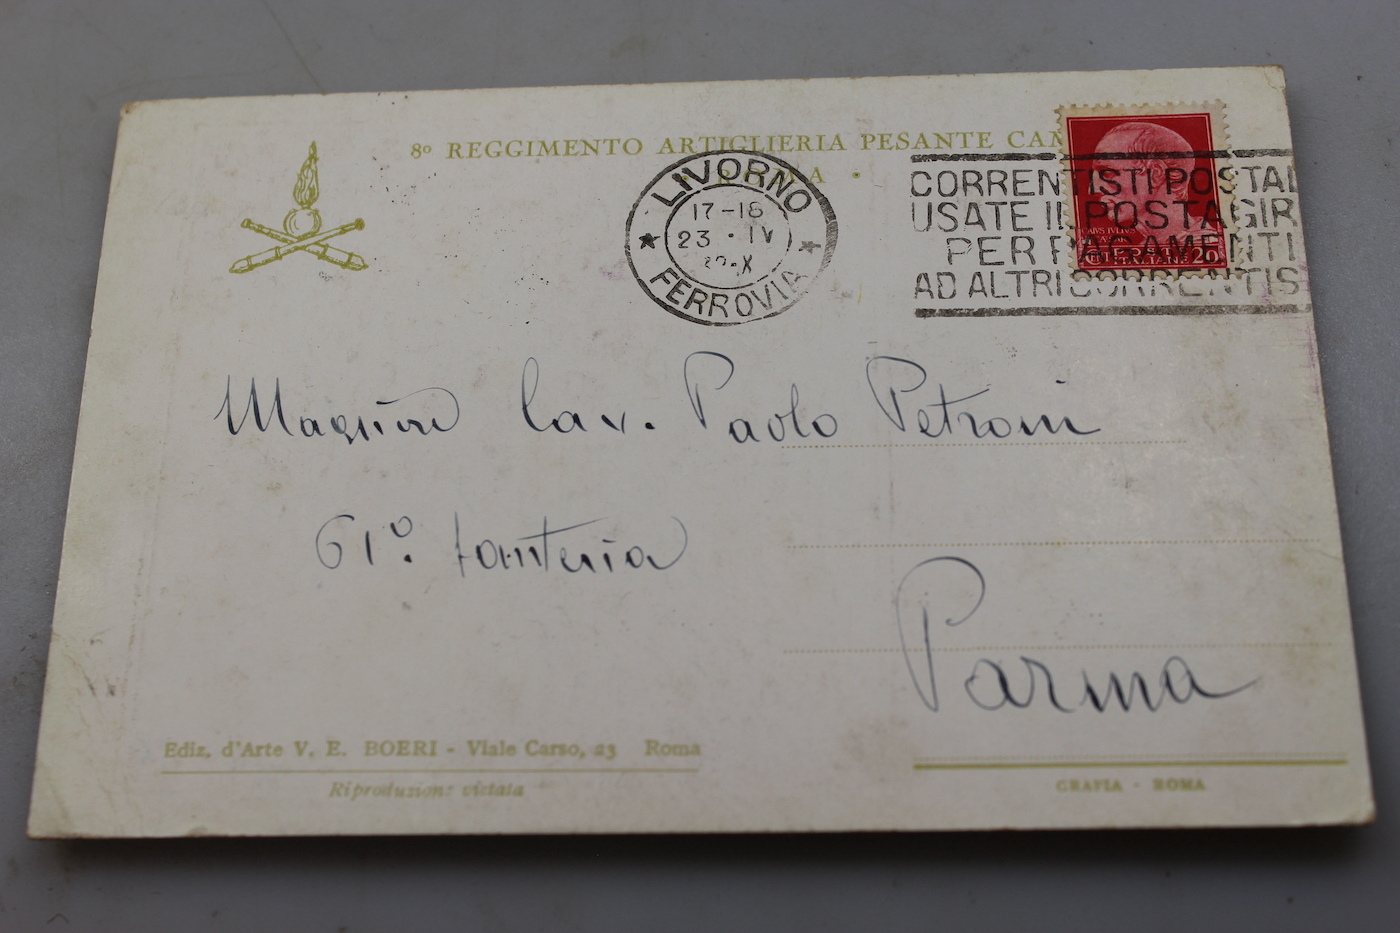 8º REGGIMENTO ARTIGLIERIA PESANTE CAM
LIVORNO
17-18
23 · IV
FERROVIA
CORRENTISTI POSTAL
USATE IL POSTAGIR
PER PAGAMENTI
AD ALTRI CORRENTIS
20
Maggiore Cav. Paolo Petroni
61º. fanteria
Parma
Ediz. d'Arte V. E. BOERI - Viale Carso, 23 Roma
Riproduzione vietata
GRAFIA - ROMA